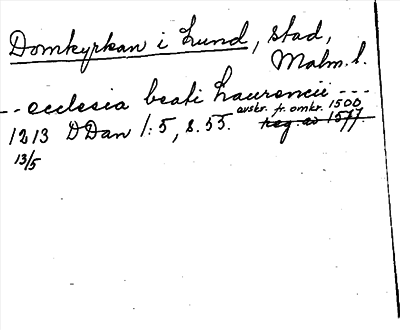 Domkyrkan i Lund, stad,
Malm. l.
-- ecclesia beati Laurencii ---
avskr. fr. omkr. 1500
1213 DDan 1:5, s. 55. reg. av 1577.
13/5